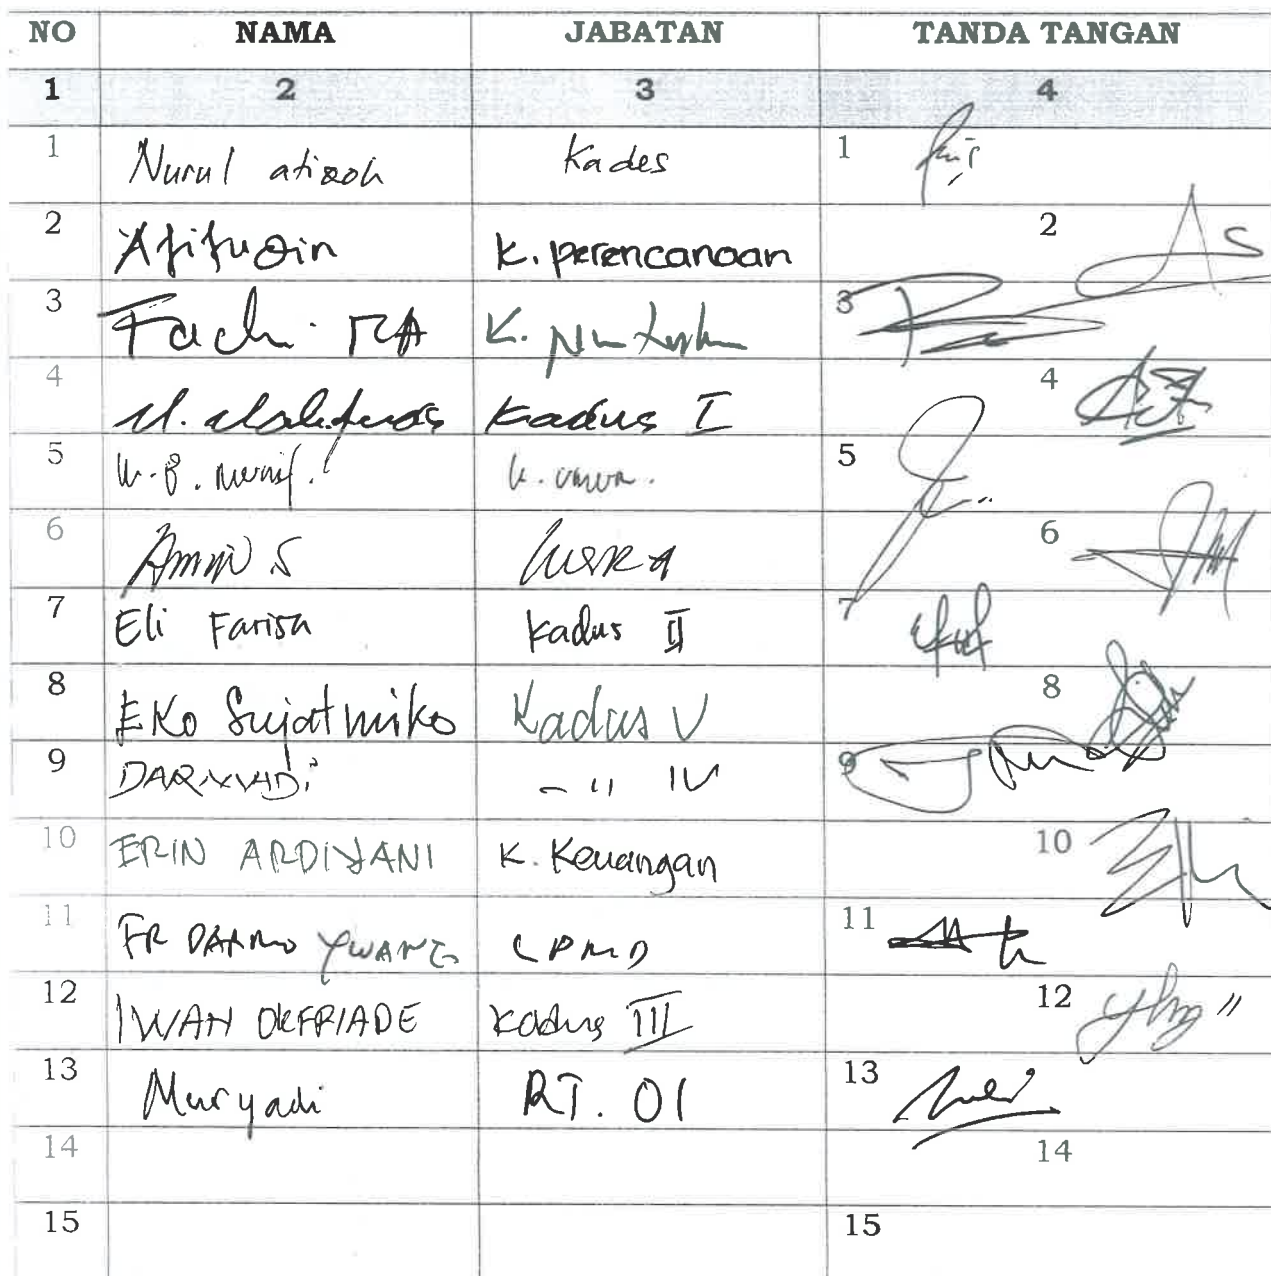 NO NAMA JABATAN TANDA TANGAN
1 2 3 4
1 Nurul atizoh Kades 1
2 Afifudin K. perencanaan 2
3 Fach RA K. 3
4 M. Kadus I 4
5 K. umum. 5
6 Amin S 6
7 Eli Farisa Kadus II 7
8 EKO Sujatmiko Kadus V 8
9 DARYADi - " IV 9
10 ERIN ARDIYANI K. Keuangan 10
11 FR DARMO YWANG LPMD 11
12 IWAN OKFRIADE Kadus III 12
13 Muryadi RT. 01 13
14 14
15 15